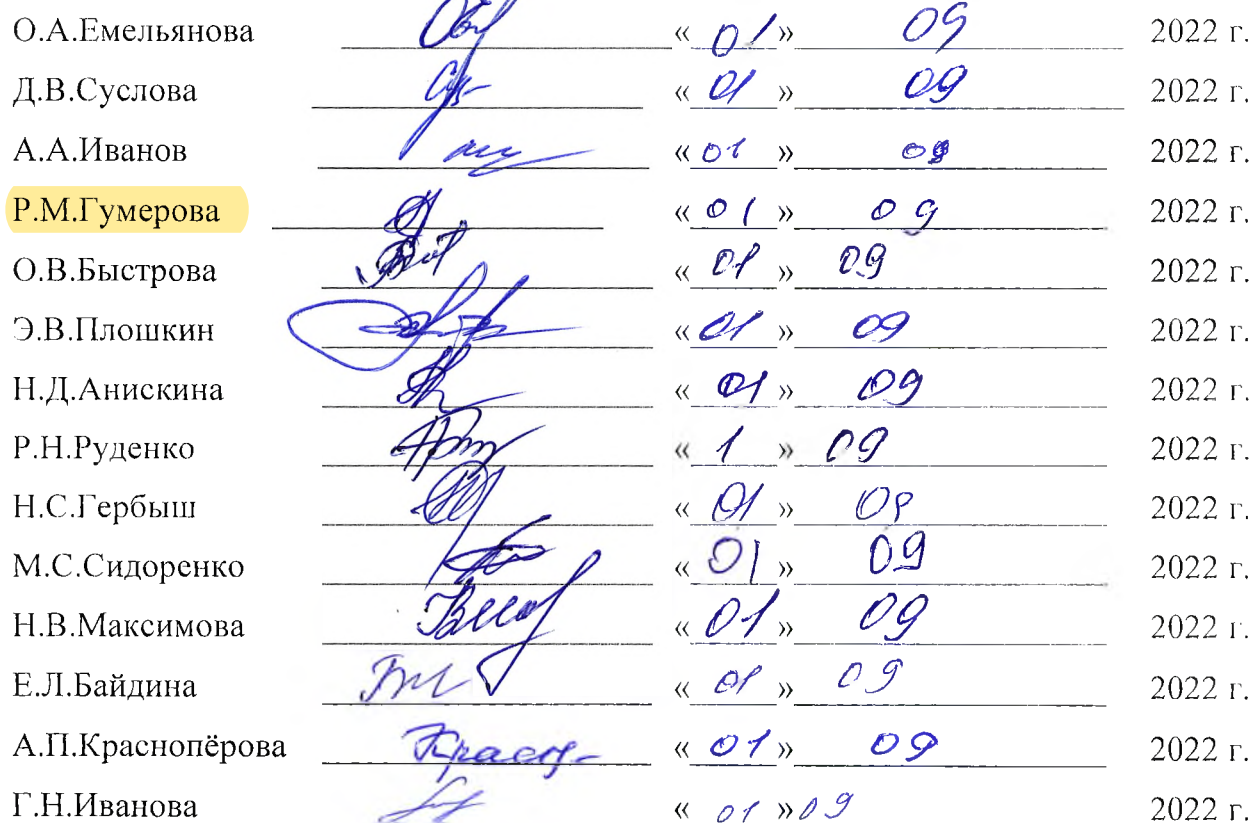 О.А.Емельянова « 01 » 09 2022 г.
Д.В.Суслова « 01 » 09 2022 г.
А.А.Иванов « 01 » 09 2022 г.
Р.М.Гумерова « 01 » 09 2022 г.
О.В.Быстрова « 01 » 09 2022 г.
Э.В.Плошкин « 01 » 09 2022 г.
Н.Д.Анискина « 01 » 09 2022 г.
Р.Н.Руденко « 1 » 09 2022 г.
Н.С.Гербыш « 01 » 09 2022 г.
М.С.Сидоренко « 01 » 09 2022 г.
Н.В.Максимова « 01 » 09 2022 г.
Е.Л.Байдина « 01 » 09 2022 г.
А.П.Краснопёрова « 01 » 09 2022 г.
Г.Н.Иванова « 01 » 09 2022 г.